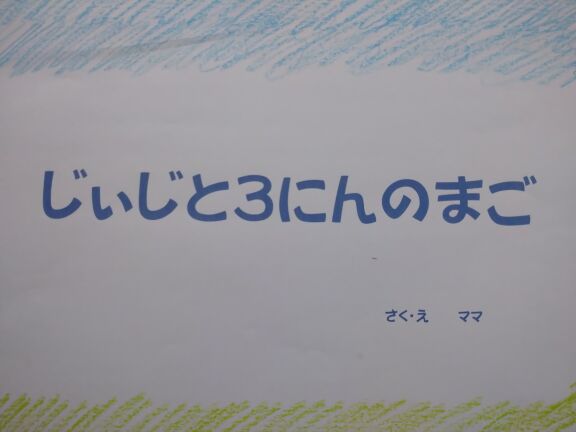 じぃじと3にんのまご
さく・え　ママ